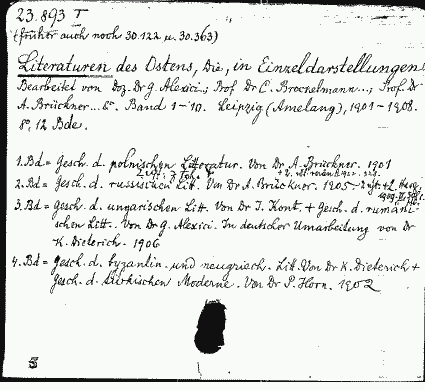 23.893 I
(früher auch noch 30.122 u. 30.363)
Literaturen des Ostens, Die, in Einzeldarstellungen.
Bearbeitet von Doz. Dr G. Alexici.; Prof Dr C. Brockelmann...; Prof. Dr
A. Brückner... &c. Band 1-10. Leipzig (Amelang), 1901-1908.
8°, 12 Bde.
1. Bd = Gesch. d. polnischen Litteratur. Von Dr A. Brückner. 1901
2. Bd = Gesch. d. russischen Litt. Von Dr A. Brückner. 1905
3. Bd = Gesch. d. ungarischen Litt. Von Dr I. Kont. + Gesch. d. rumäni-
schen Litt. Von Dr G. Alexici. In deutscher Umarbeitung von Dr
K. Dieterich. 1906
4. Bd = Gesch. d. byzantin. und neugriech. Litt. Von Dr K. Dieterich +
Gesch. d. türkischen Moderne. Von Dr P. Horn. 1902